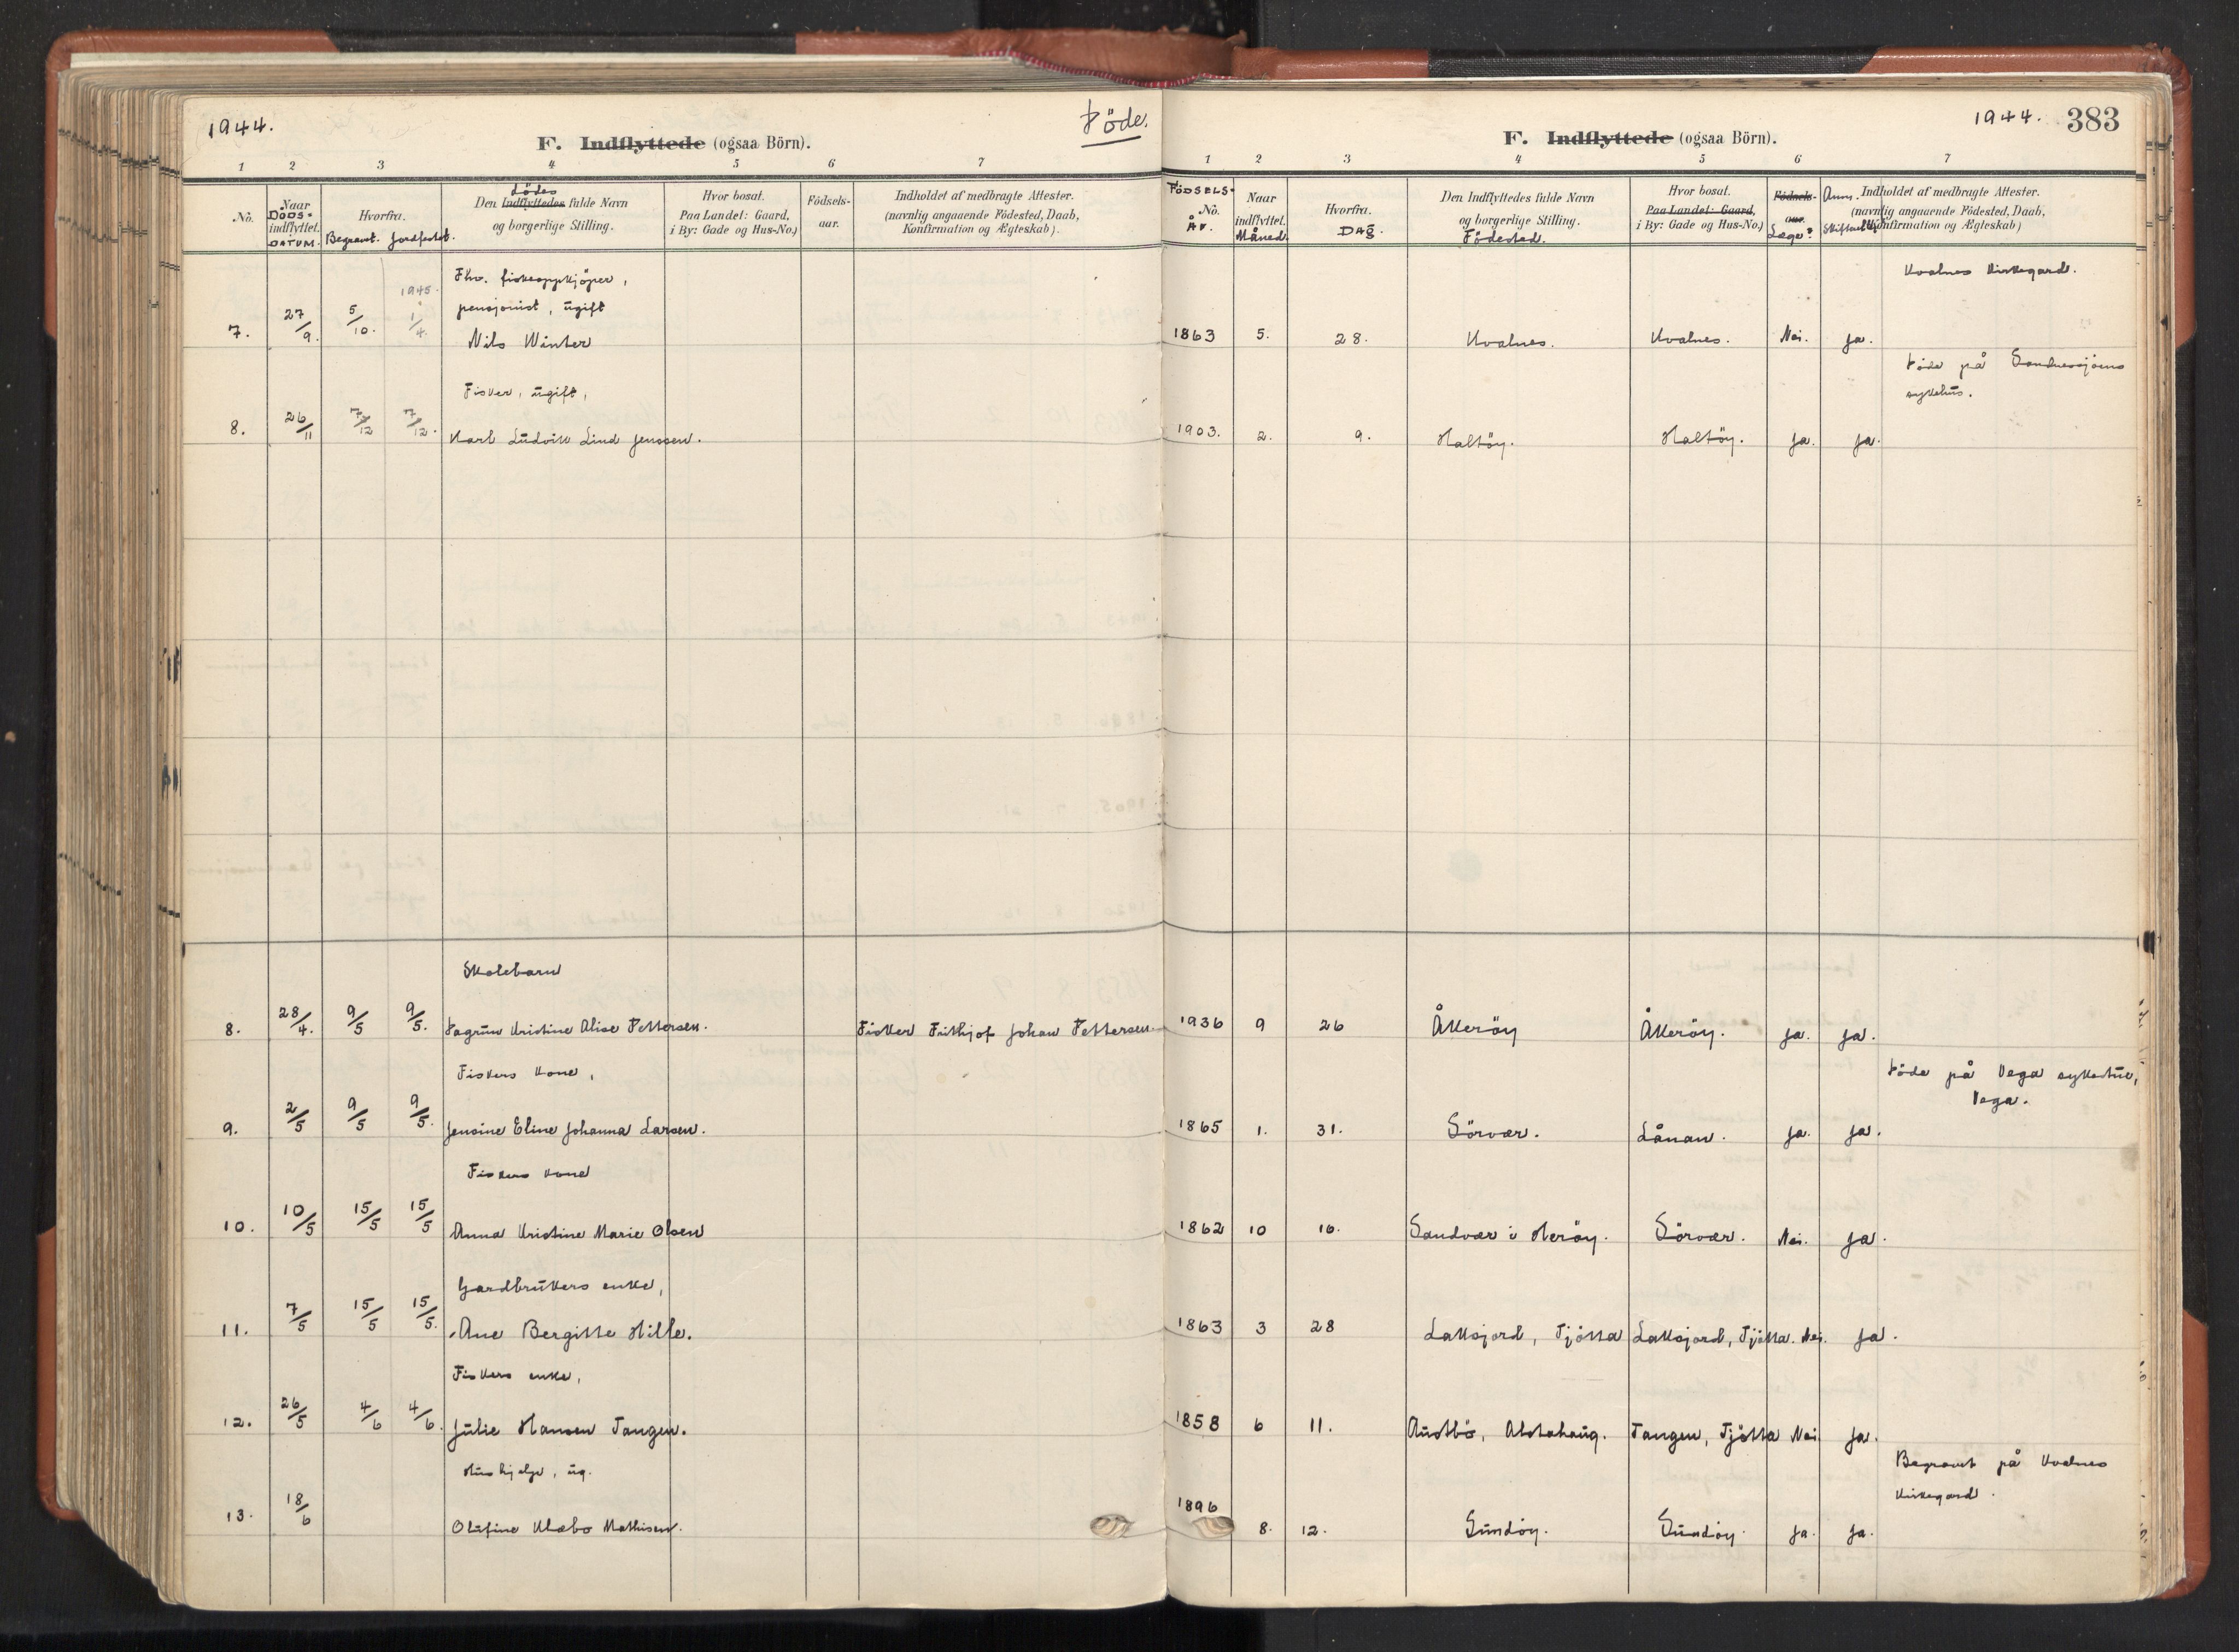 1944.
Döde.
F. Indflyttede (ogsaa Börn).
1 2 3 4 5 6 7
No.
Naar indflyttet.
Döds-
DATUM.
Hvorfra.
Begravet. Jordfestet.
dödes
Den Indflyttedes fulde Navn
og borgerlige Stilling.
Hvor bosat.
Paa Landet: Gaard,
i By: Gade og Hus-No.)
Födsels-
aar.
Indholdet af medbragte Attester.
(navnlig angaaende Födested, Daab,
Konfirmation og Ægteskab).
Fhv. fiskeoppkjöper,
1945.
pensjonist, ugift
7. 27/9. 5/10. 1/4. Nils Winter
Fisker, ugift,
8. 26/11 7/12 7/12. Karl Ludvik Lind Jenssen.
Skolebarn
8. 28/4. 9/5 9/5. Dagrun Kristine Alise Pettersen. Fisker Frithjof Johan Pettersen.
Fiskers kone,
9. 2/5 9/5 9/5. Jensine Eline Johanna Larsen.
Fiskers kone
10. 10/5 15/5 15/5 Anna Kristine Marie Olsen
Gardbrukers enke,
11. 7/5 15/5 15/5. Ane Bergitte Hille.
Fiskers enke,
12. 26/5 4/6 4/6. Julie Hansen Tangen.
Hushjelp, ug.
13. 18/6 Olufine Klæbo Mathisen.
1944. 383
F. Indflyttede (ogsaa Börn).
1 2 3 4 5 6 7
FÖDSELS-
No.
År.
Naar
indflyttet.
Måned.
Hvorfra.
DAG.
Den Indflyttedes fulde Navn
og borgerlige Stilling.
Födested.
Hvor bosat.
Paa Landet: Gaard,
i By: Gade og Hus-No.)
Födsels-
aar.
Læge?
Anm.
Indholdet af medbragte Attester.
(navnlig angaaende Födested, Daab,
Konfirmation og Ægteskab)
Kvalnes Kirkegard.
1863 5. 28. Kvalnes. Kvalnes. Nei. ja.
Döde på Sandnessjöens
sykehus.
1903. 2. 9. Haltöy. Haltöy. ja. ja.
1936 9 26 Åkeröy Åkeröy. ja. ja.
Döde på Vega sykestue,
Vega.
1865 1. 31. Sörvær. Lånan. ja. ja.
1862 10 16. Sandvær i Heröy. Sörvær. Nei. ja.
1863 3 28 Laksjord, Tjötta Laksjord, Tjötta. Nei. ja.
1858 6 11. Austbö, Alstahaug. Tangen, Tjötta Nei ja.
Begravet på Kvalnes
Kirkegard.
1896 8. 12. Sundöy. Sundöy. ja. ja.